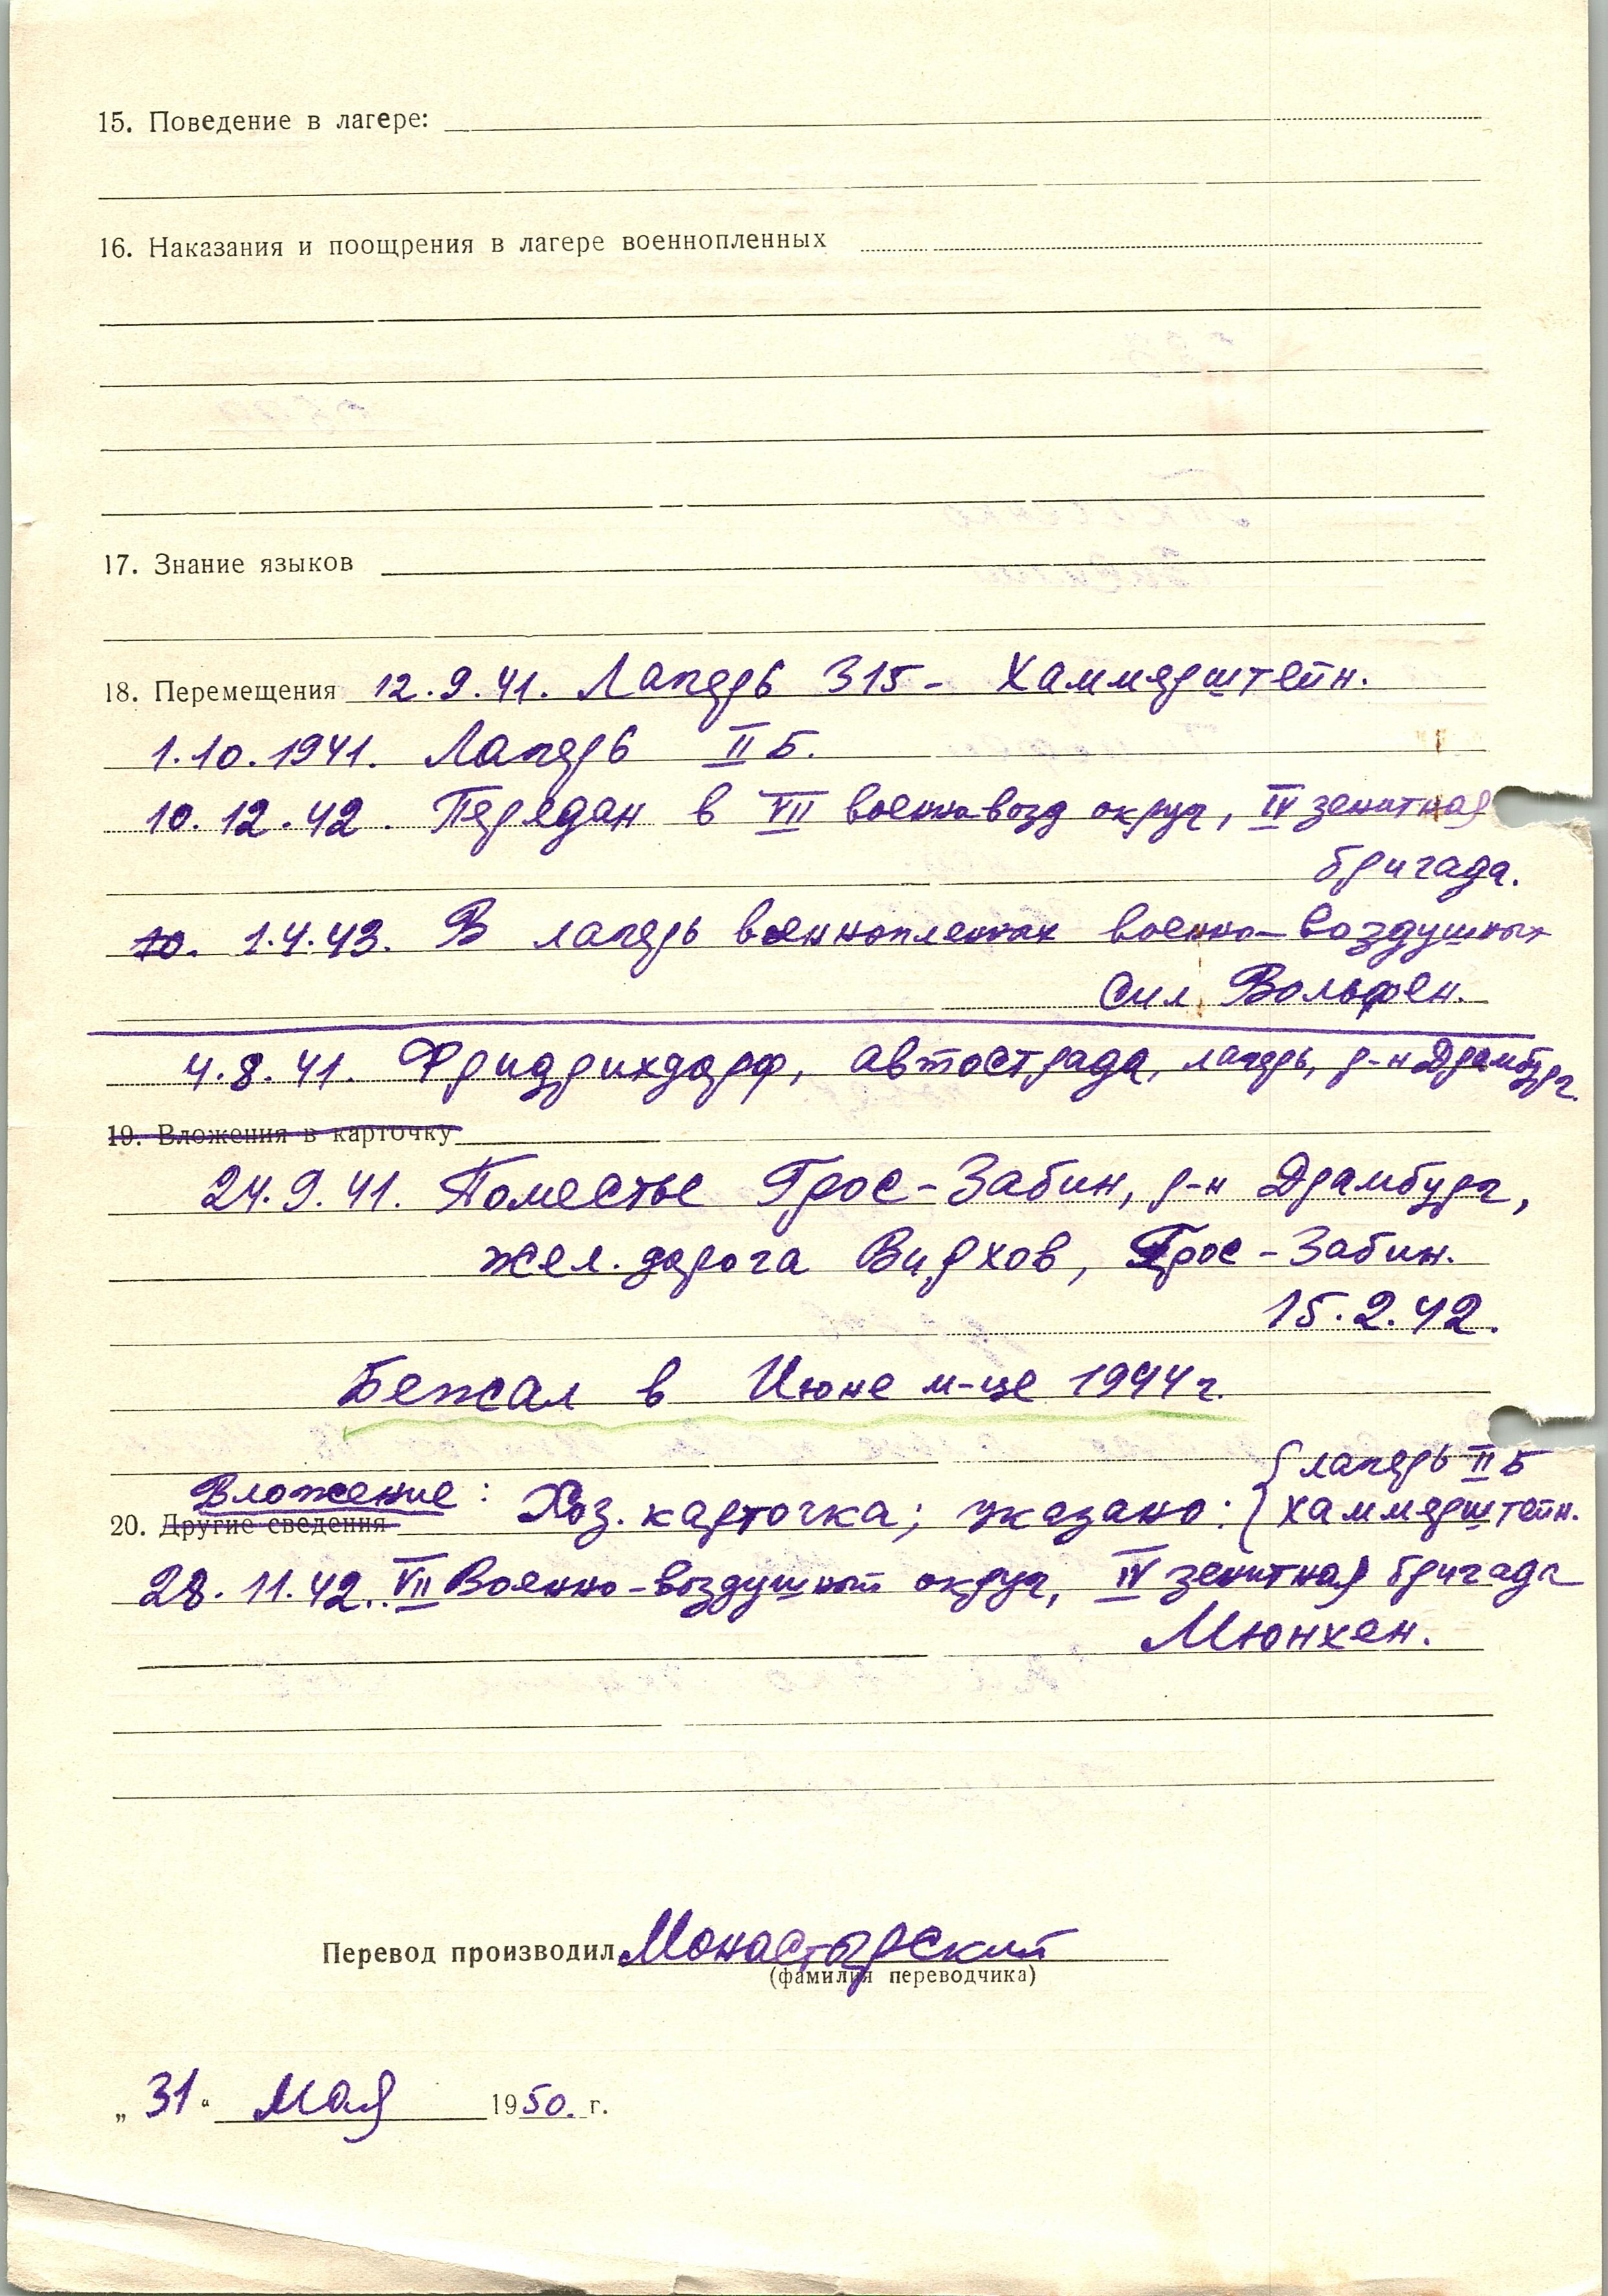 15. Поведение в лагере:
16. Наказания и поощрения в лагере военнопленных
17. Знание языков
18. Перемещения 12.9.41. Лагерь 315 - Хаммерштейн.
1.10.1941. Лагерь II Б.
10.12.42. Передан в VII военно-возд округ, IV зенитная
бригада.
10. 1.4.43. В лагерь военнопленных военно-воздушных
сил Вольфен.
4.8.41. Фридрихдорф, автострада, лагерь, р-н Драмбург.
19. Вложения в карточку
24.9.41. Поместье Грос-Забин, р-н Драмбург,
жел. дорога Вирхов, Грос-Забин.
15.2.42.
Бежал в Июне м-це 1944 г.
Вложение: Хоз. карточка; указано: { лагерь II Б
20. Другие сведения Хаммерштейн.
28.11.42. VII Военно-воздушный округ, IV зенитная бригада
Мюнхен.
Перевод производил Монастырский
(фамилия переводчика)
„31" Мая 1950. г.